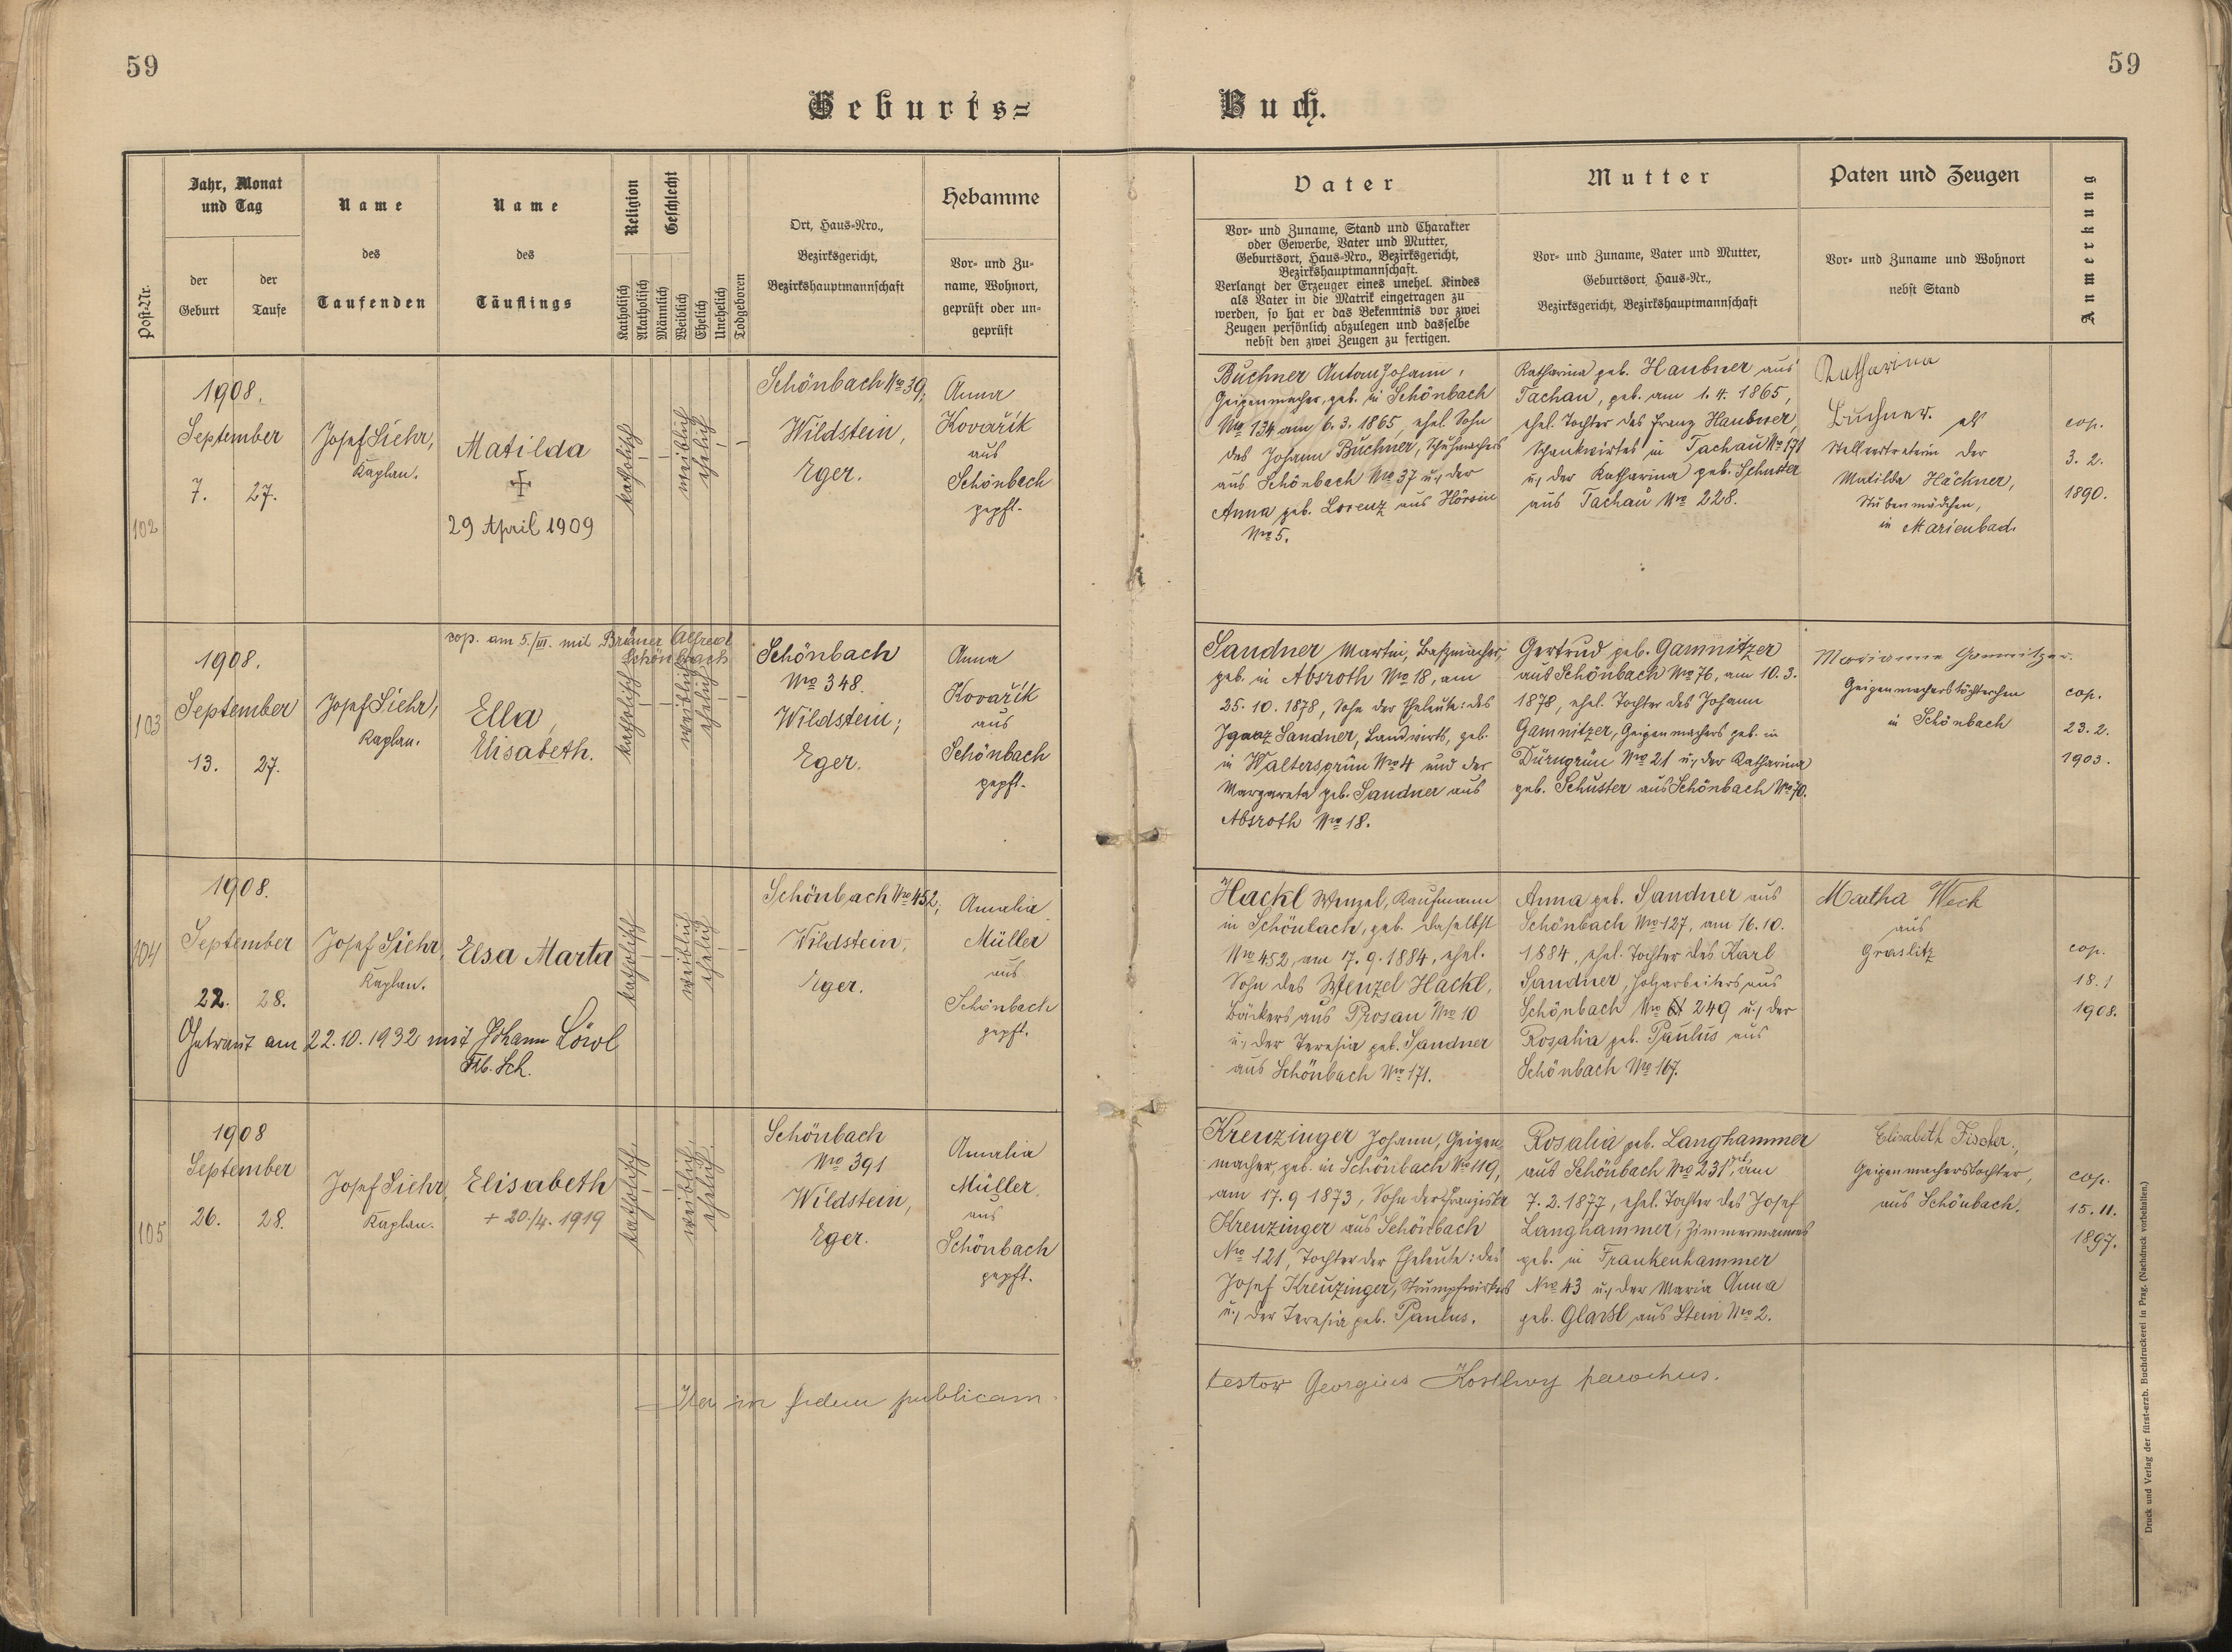 59
59
Geburts=
Buch.
Post-Nr.
Jahr, Monat
und Tag
der
Geburt
der
Taufe
Name
des
Taufenden
Name
des
Täuflings
Religion
Katholisch
Akatholisch
Geschlecht
Männlich
Weiblich
Ehelich
Unehelich
Todgeboren
Ort, Haus-Nro.,
Bezirksgericht,
Bezirkshauptmannschaft
Hebamme
Vor- und Zu-
name, Wohnort,
geprüft oder un-
geprüft
Vater
Vor- und Zuname, Stand und Charakter
oder Gewerbe, Vater und Mutter,
Geburtsort, Haus-Nro., Bezirksgericht,
Bezirkshauptmannschaft.
Verlangt der Erzeuger eines unehel. Kindes
als Vater in die Matrik eingetragen zu
werden, so hat er das Bekenntnis vor zwei
Zeugen persönlich abzulegen und dasselbe
nebst den zwei Zeugen zu fertigen.
Mutter
Vor- und Zuname, Vater und Mutter,
Geburtsort, Haus-Nr.,
Bezirksgericht, Bezirkshauptmannschaft
Paten und Zeugen
Vor- und Zuname und Wohnort
nebst Stand
Anmerkung
102
1908.
September
7. 27.
Josef Siehr,
Kaplan.
Matilda
29 April 1909
katholisch
weiblich
ehelich
Schönbach Nro 39,
Wildstein,
Eger.
Anna
Kovařík
aus
Schönbach
gepft.
Buchner Anton Johann,
Geigenmacher, geb. in Schönbach
Nro 134 am 6. 3. 1865, ehel. Sohn
des Johann Buchner, Schuhmachers
aus Schönbach Nro 37 u., der
Anna geb. Lorenz aus Hörsin
Nro 5.
Katharina geb. Haubner aus
Tachau, geb. am 1. 4. 1865,
ehel. Tochter des Franz Haubner,
Schankwirtes in Tachau Nro 171
u., der Katharina geb. Schuster
aus Tachau Nro 228.
Katharina
Buchner. als
Stellvertreterin der
Matilda Hächner,
Stubenmädchen,
in Marienbad.
cop.
3. 2.
1890.
103
1908.
September
13. 27.
Josef Siehr,
Kaplan.
cop. am 5./III. mit Bräuer Alfred
Schönbach
Ella,
Elisabeth.
katholisch
weiblich
ehelich
Schönbach
Nro 348.
Wildstein;
Eger.
Anna
Kovařík
aus
Schönbach
gepft.
Sandner Martin, Baßmacher,
geb. in Absroth Nro 18, am
25. 10. 1878, Sohn der Eheleute: des
Ignaz Sandner, Landwirts, geb.
in Waltersgrün Nro 4 und der
Margareta geb. Sandner aus
Absroth Nro 18.
Gertrud geb. Gamnitzer
aus Schönbach Nro 76, am 10. 3.
1878, ehel. Tochter des Johann
Gamnitzer, Geigenmachers geb. in
Dürngrün Nro 21 u., der Katharina
geb. Schuster aus Schönbach Nro 70.
Marianne Gamnitzer.
Geigenmacherstöchterchen
in Schönbach
cop.
23. 2.
1903.
104
1908.
September
22. 28.
Josef Siehr,
Kaplan.
Elsa Marta
Getraut am 22. 10. 1932 mit Johann Löwl
katholisch
weiblich
ehelich
Schönbach Nro 452;
Wildstein,
Eger.
Amalia
Müller
aus
Schönbach
gepft.
Hackl Wenzel, Kaufmann
in Schönbach, geb. daselbst
Nro 452, am 17. 9. 1884, ehel.
Sohn des Wenzel Hackl,
Bäckers aus Prosau Nro 10
u., der Teresia geb. Sandner
aus Schönbach Nro 171.
Anna geb. Sandner aus
Schönbach Nro 127, am 16. 10.
1884, ehel. Tochter des Karl
Sandner, Holzarbeiters aus
Schönbach Nro 249 u., der
Rosalia geb. Paulus aus
Schönbach Nro 167.
Martha Weck
aus
Graslitz
cop.
18. 1
1908.
105
1908
September
26. 28.
Josef Siehr,
Kaplan.
Elisabeth
+ 20./4. 1919
katholisch,
weiblich,
ehelich.
Schönbach
Nro 391
Wildstein,
Eger.
Amalia
Müller,
aus
Schönbach
gepft.
Kreuzinger Johann, Geigen
macher, geb. in Schönbach Nro 119,
am 17. 9 1873, Sohn der Franziska
Kreuzinger aus Schönbach
Nro 121, Tochter der Eheleute: des
Josef Kreuzinger, Strumpfwirkers
u., der Teresia geb. Paulus.
Rosalia geb. Langhammer
aus Schönbach Nro 231, geb. am
7. 2. 1877, ehel. Tochter des Josef
Langhammer, Zimmermannes
geb. in Frankenhammer
Nro 43 u., der Maria Anna
geb. Glassl aus Stein Nro 2.
Elisabeth Fischer,
Geigenmacherstochter,
aus Schönbach.
cop.
15. 11.
1897.
Ita in fidem publicam
testor Georgius Kostlivy parochus.
Druck und Verlag der fürst-erzb. Buchdruckerei in Prag. (Nachdruck vorbehalten.)